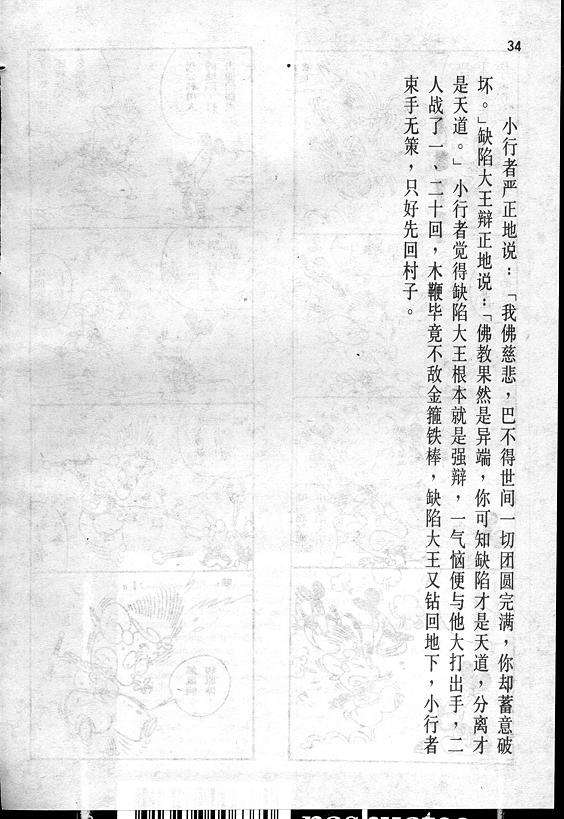 34
小行者严正地说：「我佛慈悲，巴不得世间一切团圆完满，你却蓄意破
坏。」缺陷大王辩正地说：「佛教果然是异端，你可知缺陷才是天道，分离才
是天道。」小行者觉得缺陷大王根本就是强辩，一气恼便与他大打出手，二
人战了一、二十回，木鞭毕竟不敌金箍铁棒，缺陷大王又钻回地下，小行者
束手无策，只好先回村子。